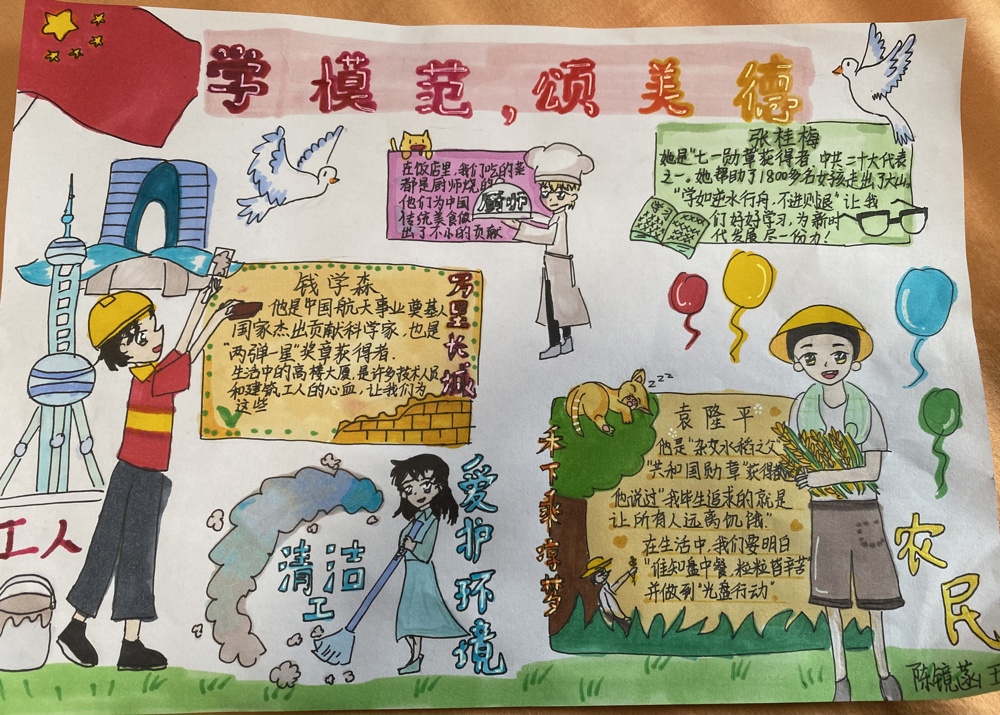 学模范，颂美德
在饭店里，我们吃的菜
都是厨师烧的
他们为中国
传统美食做
出了不小的贡献
厨师
张桂梅
她是"七一勋章获得者，中共二十大代表
之一。她帮助了1800多名女孩走出了大山。
"学如逆水行舟，不进则退"让我
们好好学习，为新时
代发展尽一份力！
钱学森
他是中国航天事业奠基人
国家杰出贡献科学家，也是
"两弹一星"奖章获得者.
生活中的高楼大厦，是许多技术人员
和建筑工人的心血，让我们为
这些
万里长城
工人
清洁工
爱护环境
禾下乘凉梦
zzz
袁隆平
他是"杂交水稻之父"
"共和国勋章"获得者
他说过"我毕生追求的就是
让所有人远离饥饿"
在生活中，我们要明白
"谁知盘中餐，粒粒皆辛苦"
并做到"光盘行动"
农民